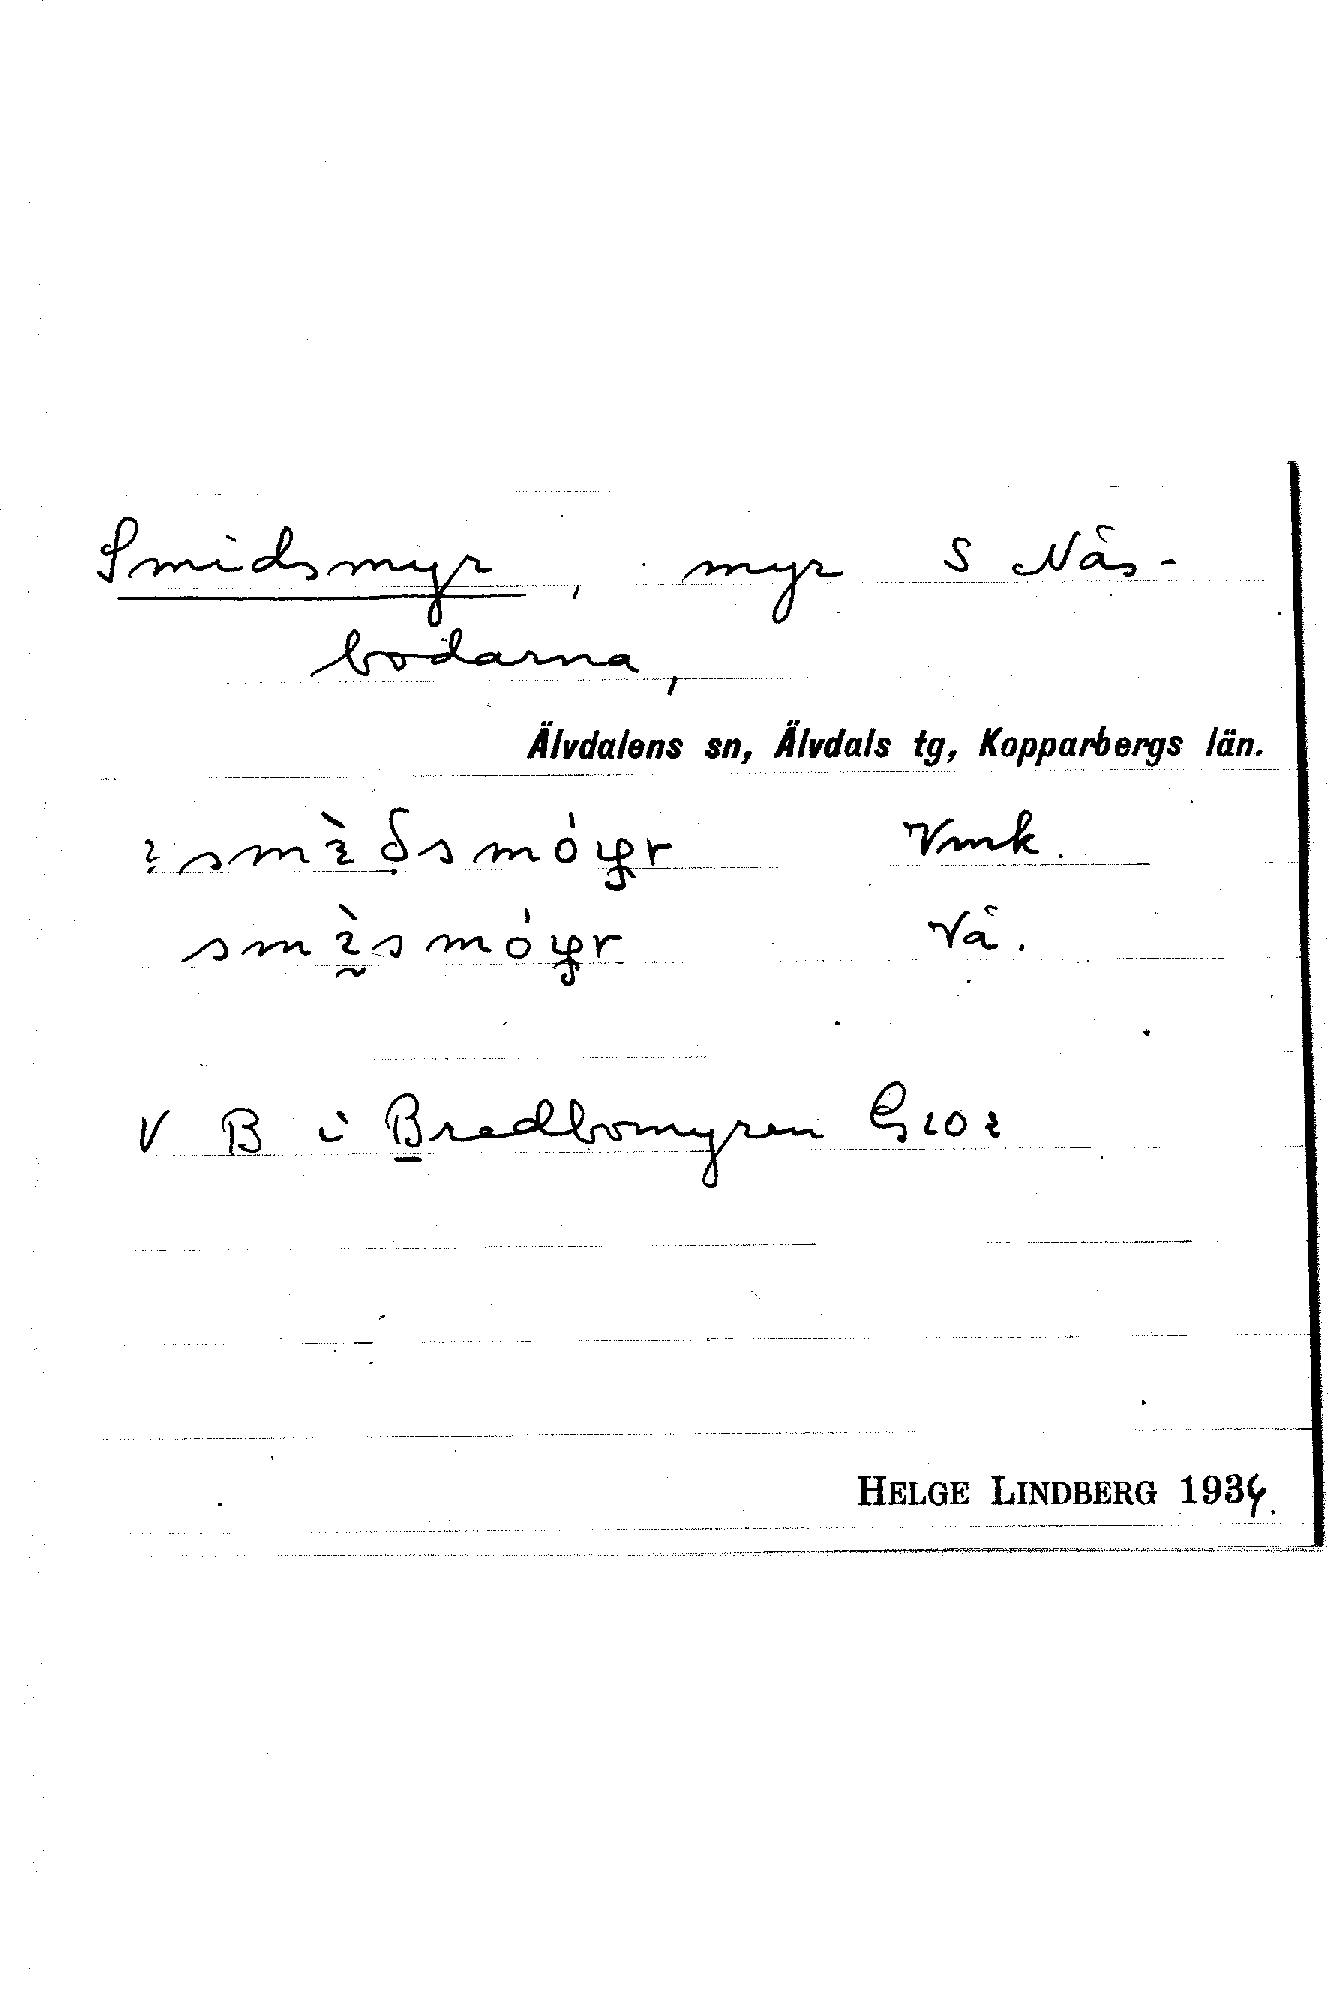 Smidsmyr, myr S Näs-
bodarna,
Älvdalens sn, Älvdals tg, Kopparbergs län.
Vmk.
Vå.
V B i Bredbomyren G202
HELGE LINDBERG 1934.